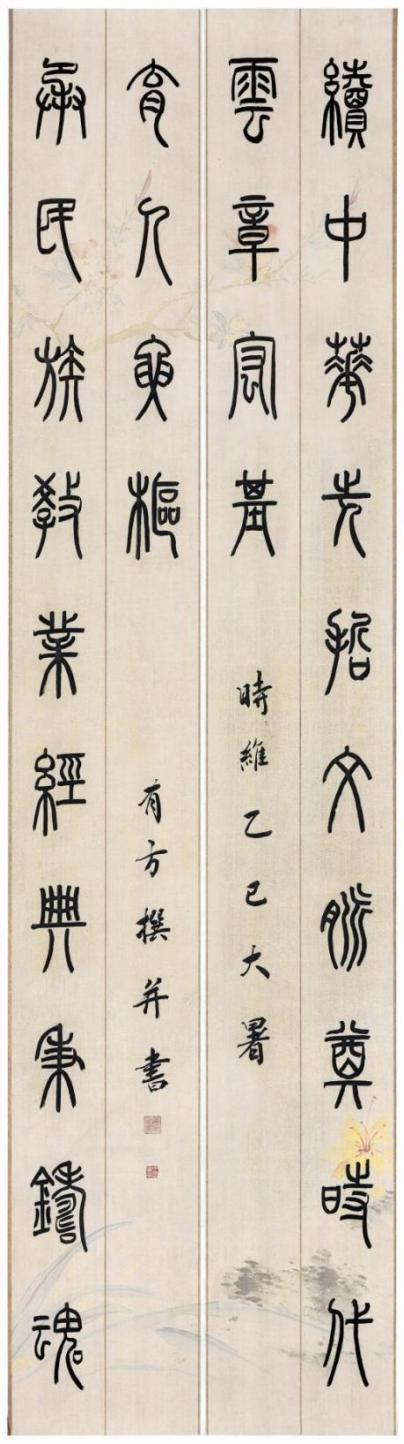 續中華先哲文脈奠時代
雲章宏基
時維乙巳大暑
承民族教業經典秉鑄魂
育人樞
有方撰并書